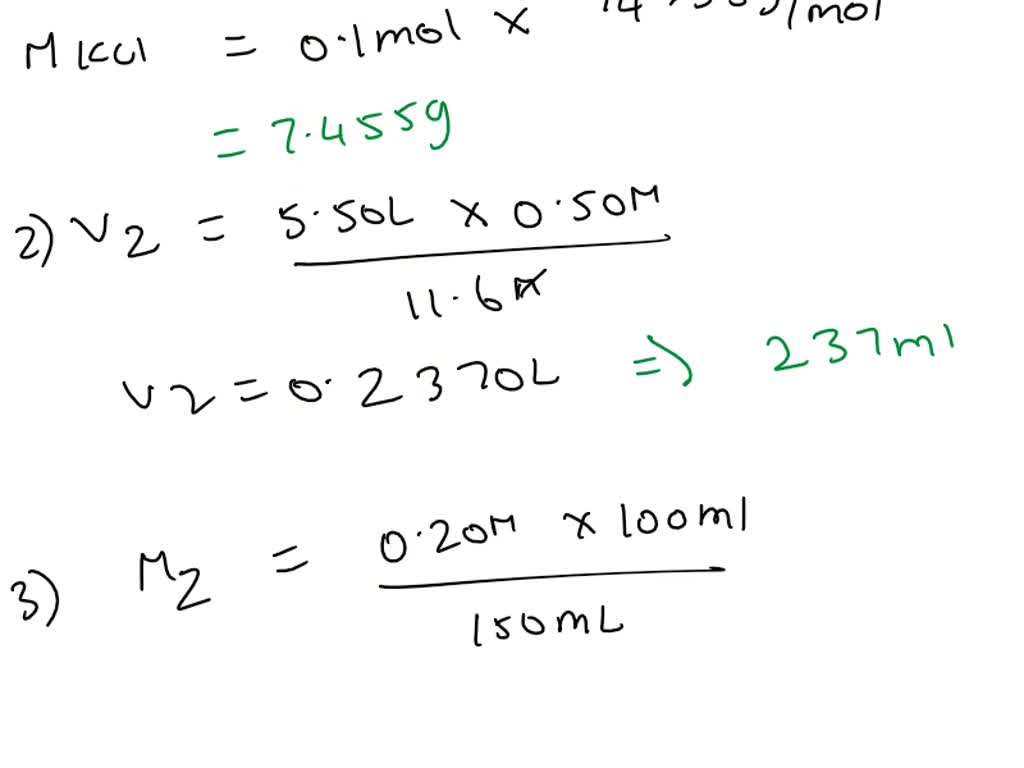 M KCl = 0.1mol x /mol
= 7.455g
2) V2 = 5.50L x 0.50M
11.6M
V2 = 0.2370L => 237ml
3) M2 = 0.20M x 100ml
150mL